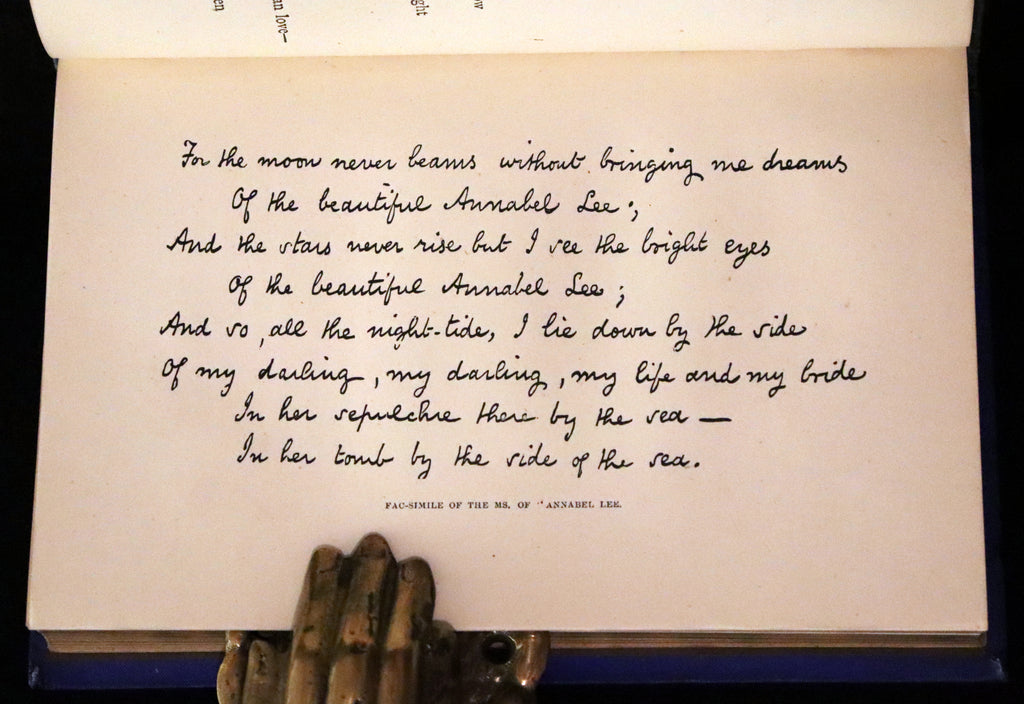 ow
ght
an love—
en
For the moon never beams without bringing me dreams
Of the beautiful Annabel Lee;
And the stars never rise but I see the bright eyes
Of the beautiful Annabel Lee;
And so, all the night-tide, I lie down by the side
Of my darling, my darling, my life and my bride
In her sepulchre there by the sea —
In her tomb by the side of the sea.
FAC-SIMILE OF THE MS. OF "ANNABEL LEE.